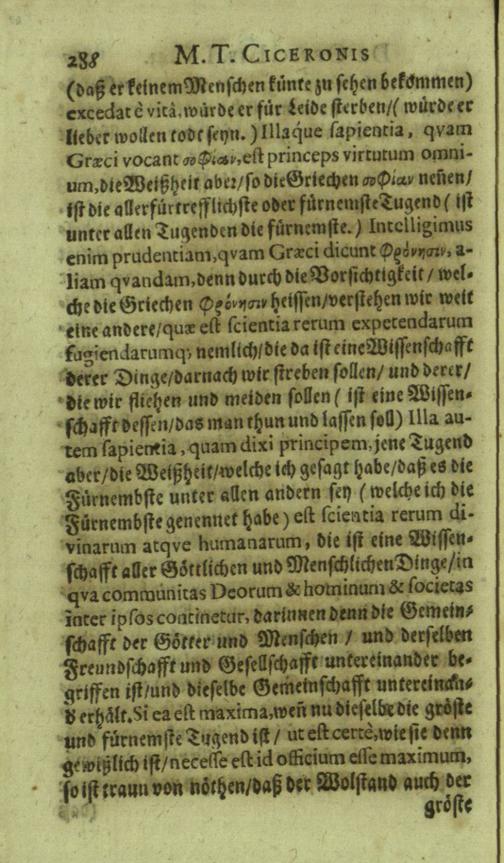 288 M. T. CICERONIS
(daß er keinem Menschen künte zu sehen bekommen)
excedat è vitâ, würde er für Leide sterben/ (würde er
lieber wollen todt seyn.) Illaq́ue sapientia, qvam
Græci vocant σοφίαν, est princeps virtutum omni-
um, die Weißheit aber/ so die Griechen σοφίαν neñen/
ist die allerfürtrefflichste oder fürnemste Tugend (ist
unter allen Tugenden die fürnemste.) Intelligimus
enim prudentiam, qvam Græci dicunt φρόνησιν, a-
liam qvandam, denn durch die Vorsichtigkeit/ wel-
che die Griechen φρόνησιν heissen/ verstehen wir weit
eine andere/ quæ est scientia rerum expetendarum
fugiendarumq; nemlich/ die da ist eine Wissenschafft
derer Dinge/ darnach wir streben sollen/ und derer/
die wir fliehen und meiden sollen (ist eine Wissen-
schafft dessen/ das man thun und lassen soll) Illa au-
tem sapientia, quam dixi principem, jene Tugend
aber/ die Weißheit/ welche ich gesagt habe/ daß es die
Fürnembste unter allen andern sey (welche ich die
Fürnembste genennet habe) est scientia rerum di-
vinarum atqve humanarum, die ist eine Wissen-
schafft aller Göttlichen und Menschlichen Dinge/ in
qva communitas Deorum & hominum & societas
inter ipsos continetur, darinnen denn die Gemein-
schafft der Götter und Menschen / und derselben
Freundschafft und Gesellschafft untereinander be-
griffen ist/ und dieselbe Gemeinschafft untereinan-
d erhält. Si ea est maxima, weñ nu dieselbe die gröste
und fürnemste Tugend ist/ ut est certè, wie sie denn
gewißlich ist/ necesse est id officium esse maximum,
so ist traun von nöthen/ daß der Wolstand auch der
gröste